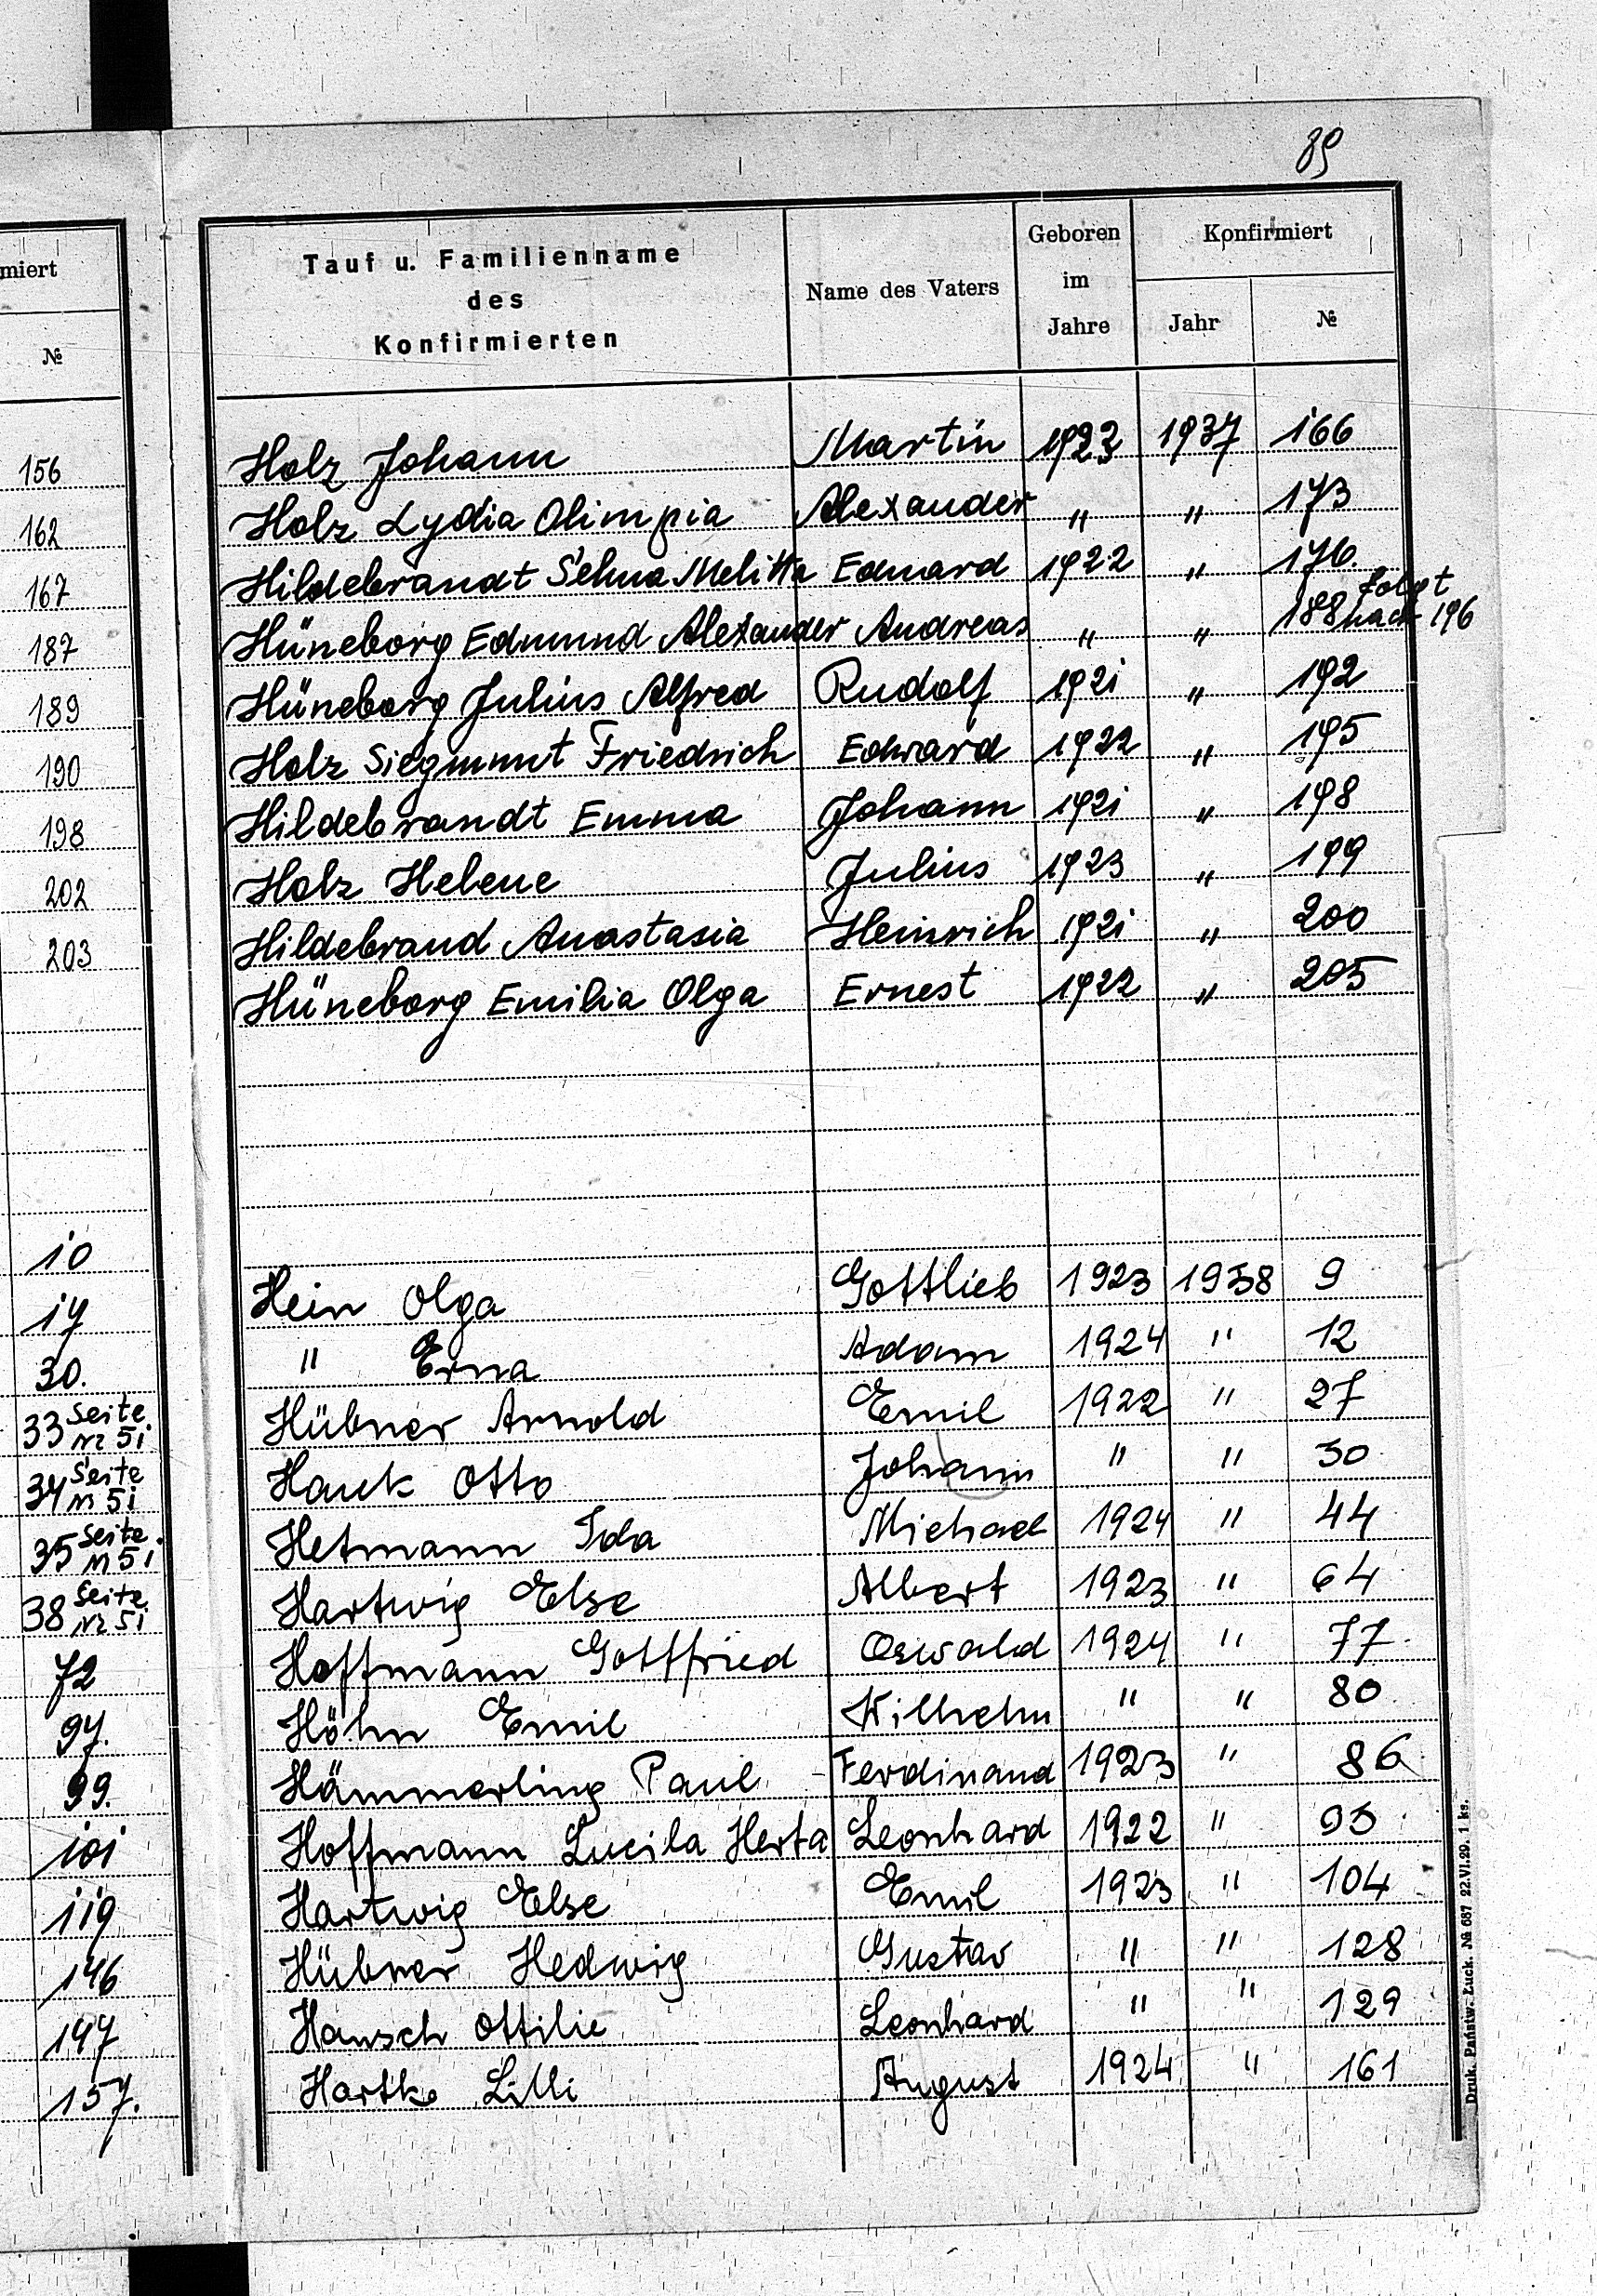 miert
№
156
162
167
187
189
190
198
202
203
10
17
30.
33 Seite Nr 51
34 Seite N 51
35 Seite N 51
38 Seite Nr 51
72
97.
99.
101
119
146
147
157.
89
Tauf u. Familienname des Konfirmierten | Name des Vaters | Geboren im Jahre | Konfirmiert Jahr | №
Holz Johann Martin 1923 1937 166
Holz Lydia Olimpia Alexander " " 173
Hildebrandt Selma Melitta Eduard 1922 " 176.
Hüneborg Edmund Alexander Andreas " " 188 folgt nach 196
Hüneborg Julius Alfred Rudolf 1921 " 192
Holz Siegmunt Friedrich Edward 1922 " 195
Hildebrandt Emma Johann 1921 " 198
Holz Helene Julius 1923 " 199
Hildebrand Anastasia Heinrich 1921 " 200
Hüneborg Emilia Olga Ernest 1922 " 205
Hein Olga Gottlieb 1923 1938 9
" Erna Adam 1924 " 12
Hübner Arnold Emil 1922 " 27
Hauk Otto Johann " " 30
Hetmann Ida Michael 1924 " 44
Hartwig Else Albert 1923 " 64
Hoffmann Gottfried Oswald 1924 " 77
Höhn Emil Wilhelm " " 80
Hämmerling Paul Ferdinand 1923 " 86
Hoffmann Lucila Herta Leonhard 1922 " 93
Hartwig Else Emil 1923 " 104
Hübner Hedwig Gustav " " 128
Hansch Ottilie Leonhard " " 129
Hartke Lilli August 1924 " 161
Druk. Państw. Łuck. № 687 22.VI.29. 1 ks.